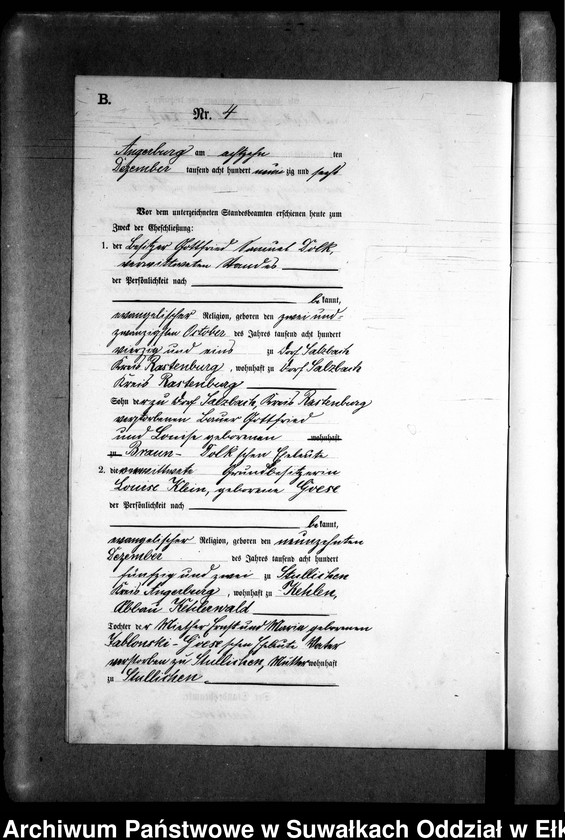 B.
Nr. 4
Angerburg am achtzehn ten
Dezember tausend acht hundert neun zig und sechs
Vor dem unterzeichneten Standesbeamten erschienen heute zum
Zweck der Eheschließung:
1. der Besitzer Gottfried Samuel Dolk,
verwittweten Standes
der Persönlichkeit nach
bekannt,
evangelischer Religion, geboren den zwei und-
zwanzigsten October des Jahres tausend acht hundert
vierzig und eins zu Dorf Salzbach
Kreis Rastenburg, wohnhaft zu Dorf Salzbach
Kreis Rastenburg
Sohn der zu Dorf Salzbach, Kreis Rastenburg
verstorbenen Bauer Gottfried
und Louise geborenen wohnhaft
zu Braun- Dolk'schen Eheleute
2. die verwittwete Grundbesitzerin
Louise Klein, geborene Goese
der Persönlichkeit nach
bekannt,
evangelischer Religion, geboren den neunzehnten
Dezember des Jahres tausend acht hundert
fünfzig und zwei zu Stullichen
Kreis Angerburg, wohnhaft zu Kehlen,
Abbau Kehlerwald
Tochter der Miether Ernst und Maria geborenen
Jablonski- Goese'schen Eheleute Vater
verstorben zu Stullichen, Mutter wohnhaft
zu Stullichen.
Archiwum Państwowe w Suwałkach Oddział w Ełk